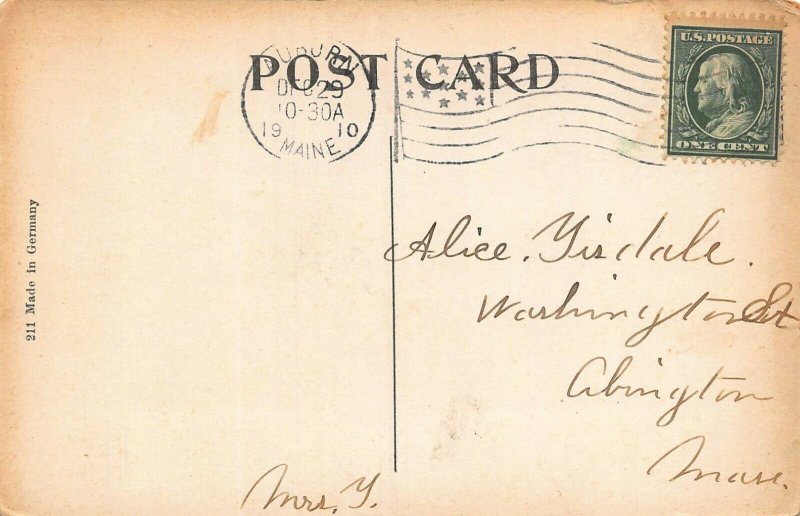 POST CARD
AUBURN
DEC 29
10-30A
1910
MAINE
U.S. POSTAGE
ONE CENT
Alice. Tisdale.
Washington St
Abington
Mass.
Mrs. T.
211 Made in Germany